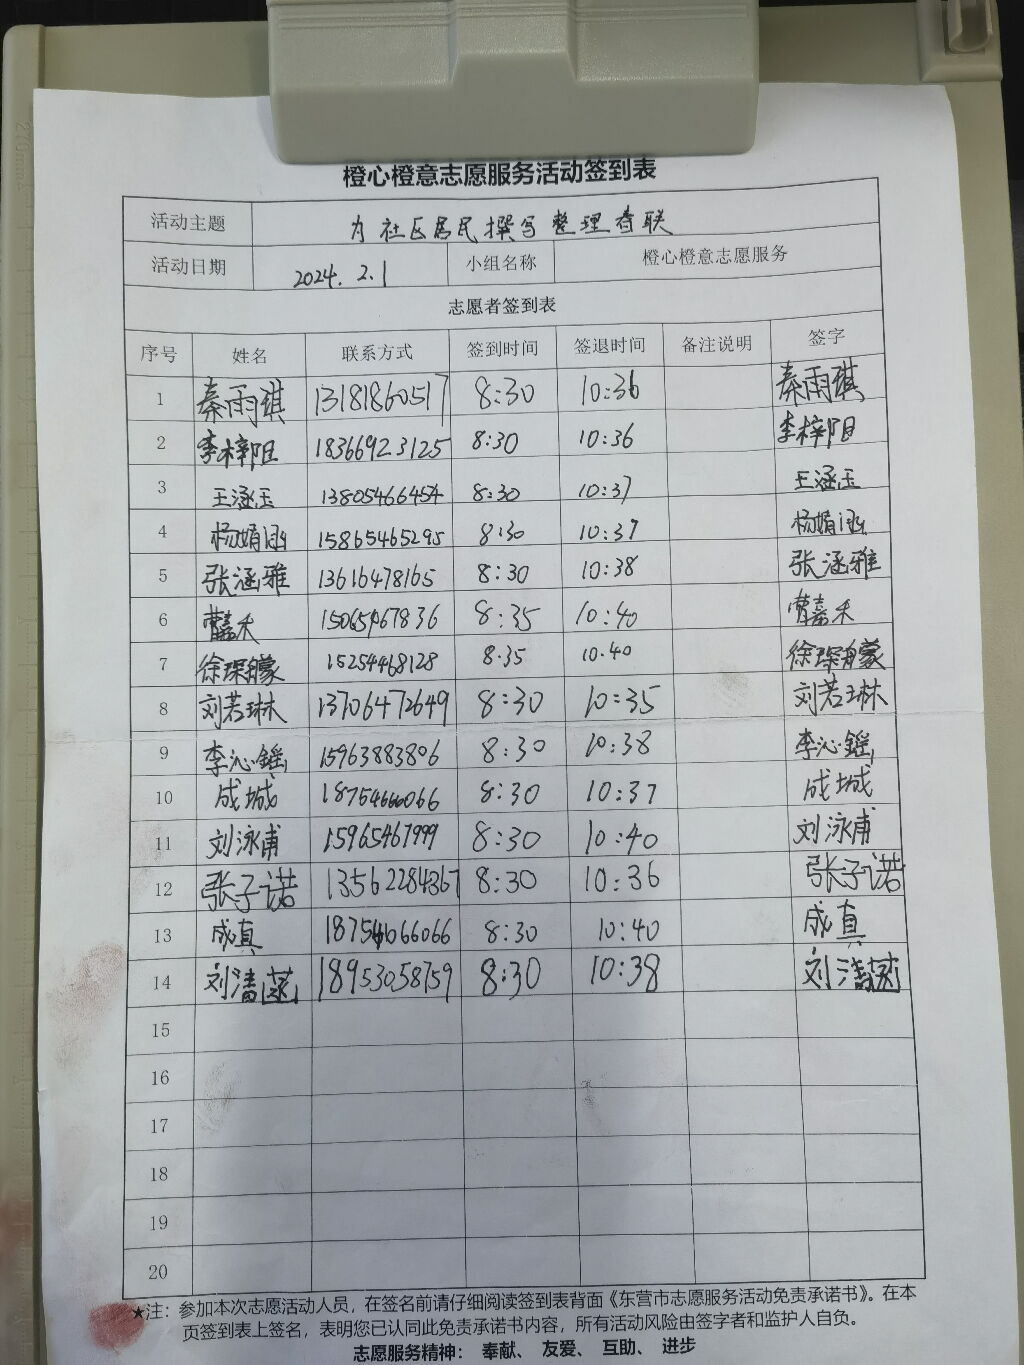 橙心橙意志愿服务活动签到表
活动主题 为社区居民撰写整理春联
活动日期 2024.2.1 小组名称 橙心橙意志愿服务
志愿者签到表
序号 姓名 联系方式 签到时间 签退时间 备注说明 签字
1 秦雨琪 13181860517 8:30 10:36 秦雨琪
2 李梓阳 18366923125 8:30 10:36 李梓阳
3 王涵玉 13805466454 8:30 10:37 王涵玉
4 杨婧涵 15865465295 8:30 10:37 杨婧涵
5 张涵雅 13616478165 8:30 10:38 张涵雅
6 曹嘉禾 8:35 10:40 曹嘉禾
7 徐琛朦 15254468128 8:35 10:40 徐琛朦
8 刘若琳 13706472649 8:30 10:35 刘若琳
9 李沁鑫 15963883806 8:30 10:38 李沁鑫
10 成城 18754666066 8:30 10:37 成城
11 刘泳甫 15965467999 8:30 10:40 刘泳甫
12 张子诺 13562284367 8:30 10:36 张子诺
13 成真 8:30 10:40 成真
14 刘清 18953058759 8:30 10:38 刘清
15
16
17
18
19
20
★注：参加本次志愿活动人员，在签名前请仔细阅读签到表背面《东营市志愿服务活动免责承诺书》。在本
页签到表上签名，表明您已认同此免责承诺书内容，所有活动风险由签字者和监护人自负。
志愿服务精神： 奉献、 友爱、 互助、 进步